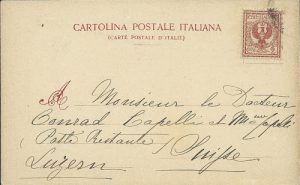 CARTOLINA POSTALE ITALIANA
(CARTE POSTALE D'ITALIE)
A Monsieur le Docteur
Conrad Capelli et Mme Capelli
(Poste Restante)
Luzern / Suisse